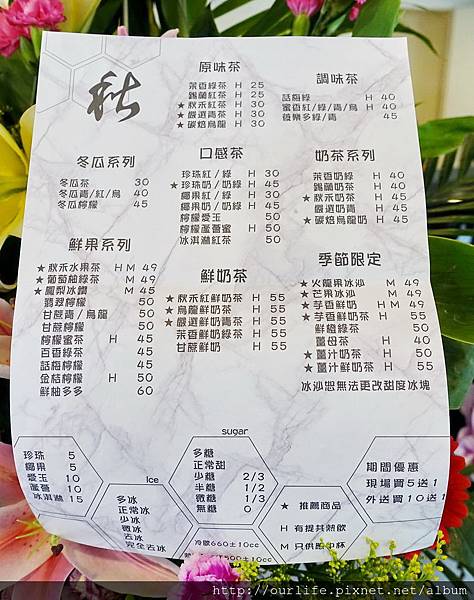 秋
原味茶
茉香綠茶 H 25
錫蘭紅茶 H 25
★ 秋禾紅茶 H 30
★ 嚴選青茶 H 30
★ 碳焙烏龍 H 30
調味茶
話梅綠 H 40
蜜香紅/綠/青/烏 H 40
養樂多綠/青 45
冬瓜系列
冬瓜茶 30
冬瓜青/紅/烏 40
冬瓜檸檬 45
口感茶
珍珠紅/綠 H 30
★ 珍珠奶/奶綠 H 45
椰果紅/綠 H 30
椰果奶/奶綠 H 45
檸檬愛玉 50
檸檬蘆薈蜜 H 50
冰淇淋紅茶 50
奶茶系列
茉香奶綠 H 40
錫蘭奶茶 H 40
★ 秋禾奶茶 H 45
★ 嚴選奶青 H 45
★ 碳焙烏龍奶 H 45
鮮果系列
★ 秋禾水果茶 H M 49
★ 葡萄柚綠茶 M 49
★ 鳳梨冰鑽 M 45
翡翠檸檬 50
甘蔗青/烏龍 50
甘蔗檸檬 50
檸檬蜜茶 H 50
百香綠茶 45
話梅檸檬 45
金桔檸檬 H 50
鮮柚多多 60
鮮奶茶
★ 秋禾紅鮮奶茶 H 55
★ 烏龍鮮奶茶 H 55
★ 嚴選鮮奶青茶 H 55
茉香綠鮮奶茶 H 55
甘蔗鮮奶 H 55
季節限定
★ 火龍果冰沙 M 49
★ 芒果冰沙 M 49
★ 芋香鮮奶 H M 49
★ 芋香鮮奶茶 H 55
鮮橙綠茶 50
薑母茶 H 40
★ 薑汁奶茶 H 50
★ 薑汁鮮奶茶 H 55
冰沙恕無法更改甜度冰塊
珍珠 5
椰果 5
愛玉 10
蘆薈 10
冰淇淋 15
Ice
多冰
正常冰
少冰
微冰
去冰
完全去冰
sugar
多糖
正常甜
少糖 2/3
半糖 1/2
微糖 1/3
無糖 0
冷飲660±10cc
500±10cc
★ 推薦商品
H 有提供熱飲
M 只供應中杯
期間優惠
現場買5送1
外送買10送1
http://ourlife.pixnet.net/album